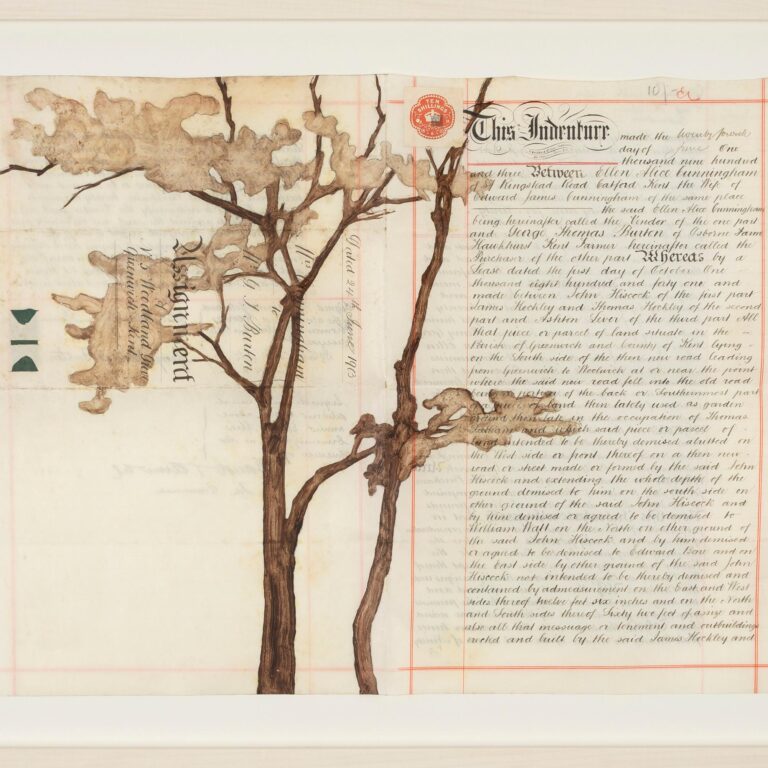 10/-
TEN
SHILLINGS
This Indenture made the
day of June One
thousand nine hundred
and three Between Ellen Alice Cunningham
of Kingshead Road Catford Kent the Wife of
Edward James Cunningham of the same place
the said Ellen Alice Cunningham
being hereinafter called the Vendor of the one part
and George Thomas Burton of Osborne Farm
Hawkhurst Kent Farmer hereinafter called the
Purchaser of the other part Whereas by a
Lease dated the first day of October One
thousand eight hundred and forty one and
made between John Hiscock of the first part
James Heckley and Thomas Heckley of the second
part and Ashton of the third part All
that piece or parcel of land situate in the
Parish of Greenwich and County of Kent lying
on the South side of the then new road leading
from Greenwich to Woolwich at or near the point
where the said new road fell into the old road
portion of the back or Southernmost part
of land then lately used as garden
ground then late in the occupation of Thomas
and which said piece or parcel of
land intended to be thereby demised abutted on
the West side or front thereof on a then new
road or street made or formed by the said John
Hiscock and extending the whole depth of the
ground demised to him on the south side on
other ground of the said John Hiscock and
by him demised or agreed to be demised to
William Wall on the North on other ground of
the said John Hiscock and by him demised
or agreed to be demised to Edward and on
the East side by other ground of the said John
Hiscock not intended to be thereby demised and
contained by admeasurement on the East and West
sides thereof twelve feet six inches and on the North
and South sides thereof Sixty five feet of assize and
also all that messuage or tenement and outbuildings
erected and built by the said James Heckley and
Dated 24th June 1903
Cunningham
to
G T Burton
Assignment
Woodland
Greenwich Kent